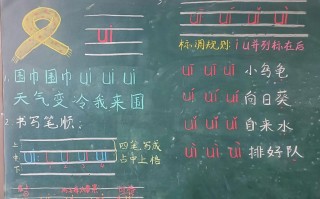 ui
1. 围巾围巾 ui ui ui
天气变冷我来围
2. 书写笔顺:
上
中
下
ui ui ui ui
四笔写成
占中上格
uī uí uǐ uì
标调规则: i u并列标在后
uī uī uī 小乌龟
uí uí uí 向日葵
uǐ uǐ uǐ 自来水
uì uì uì 排好队